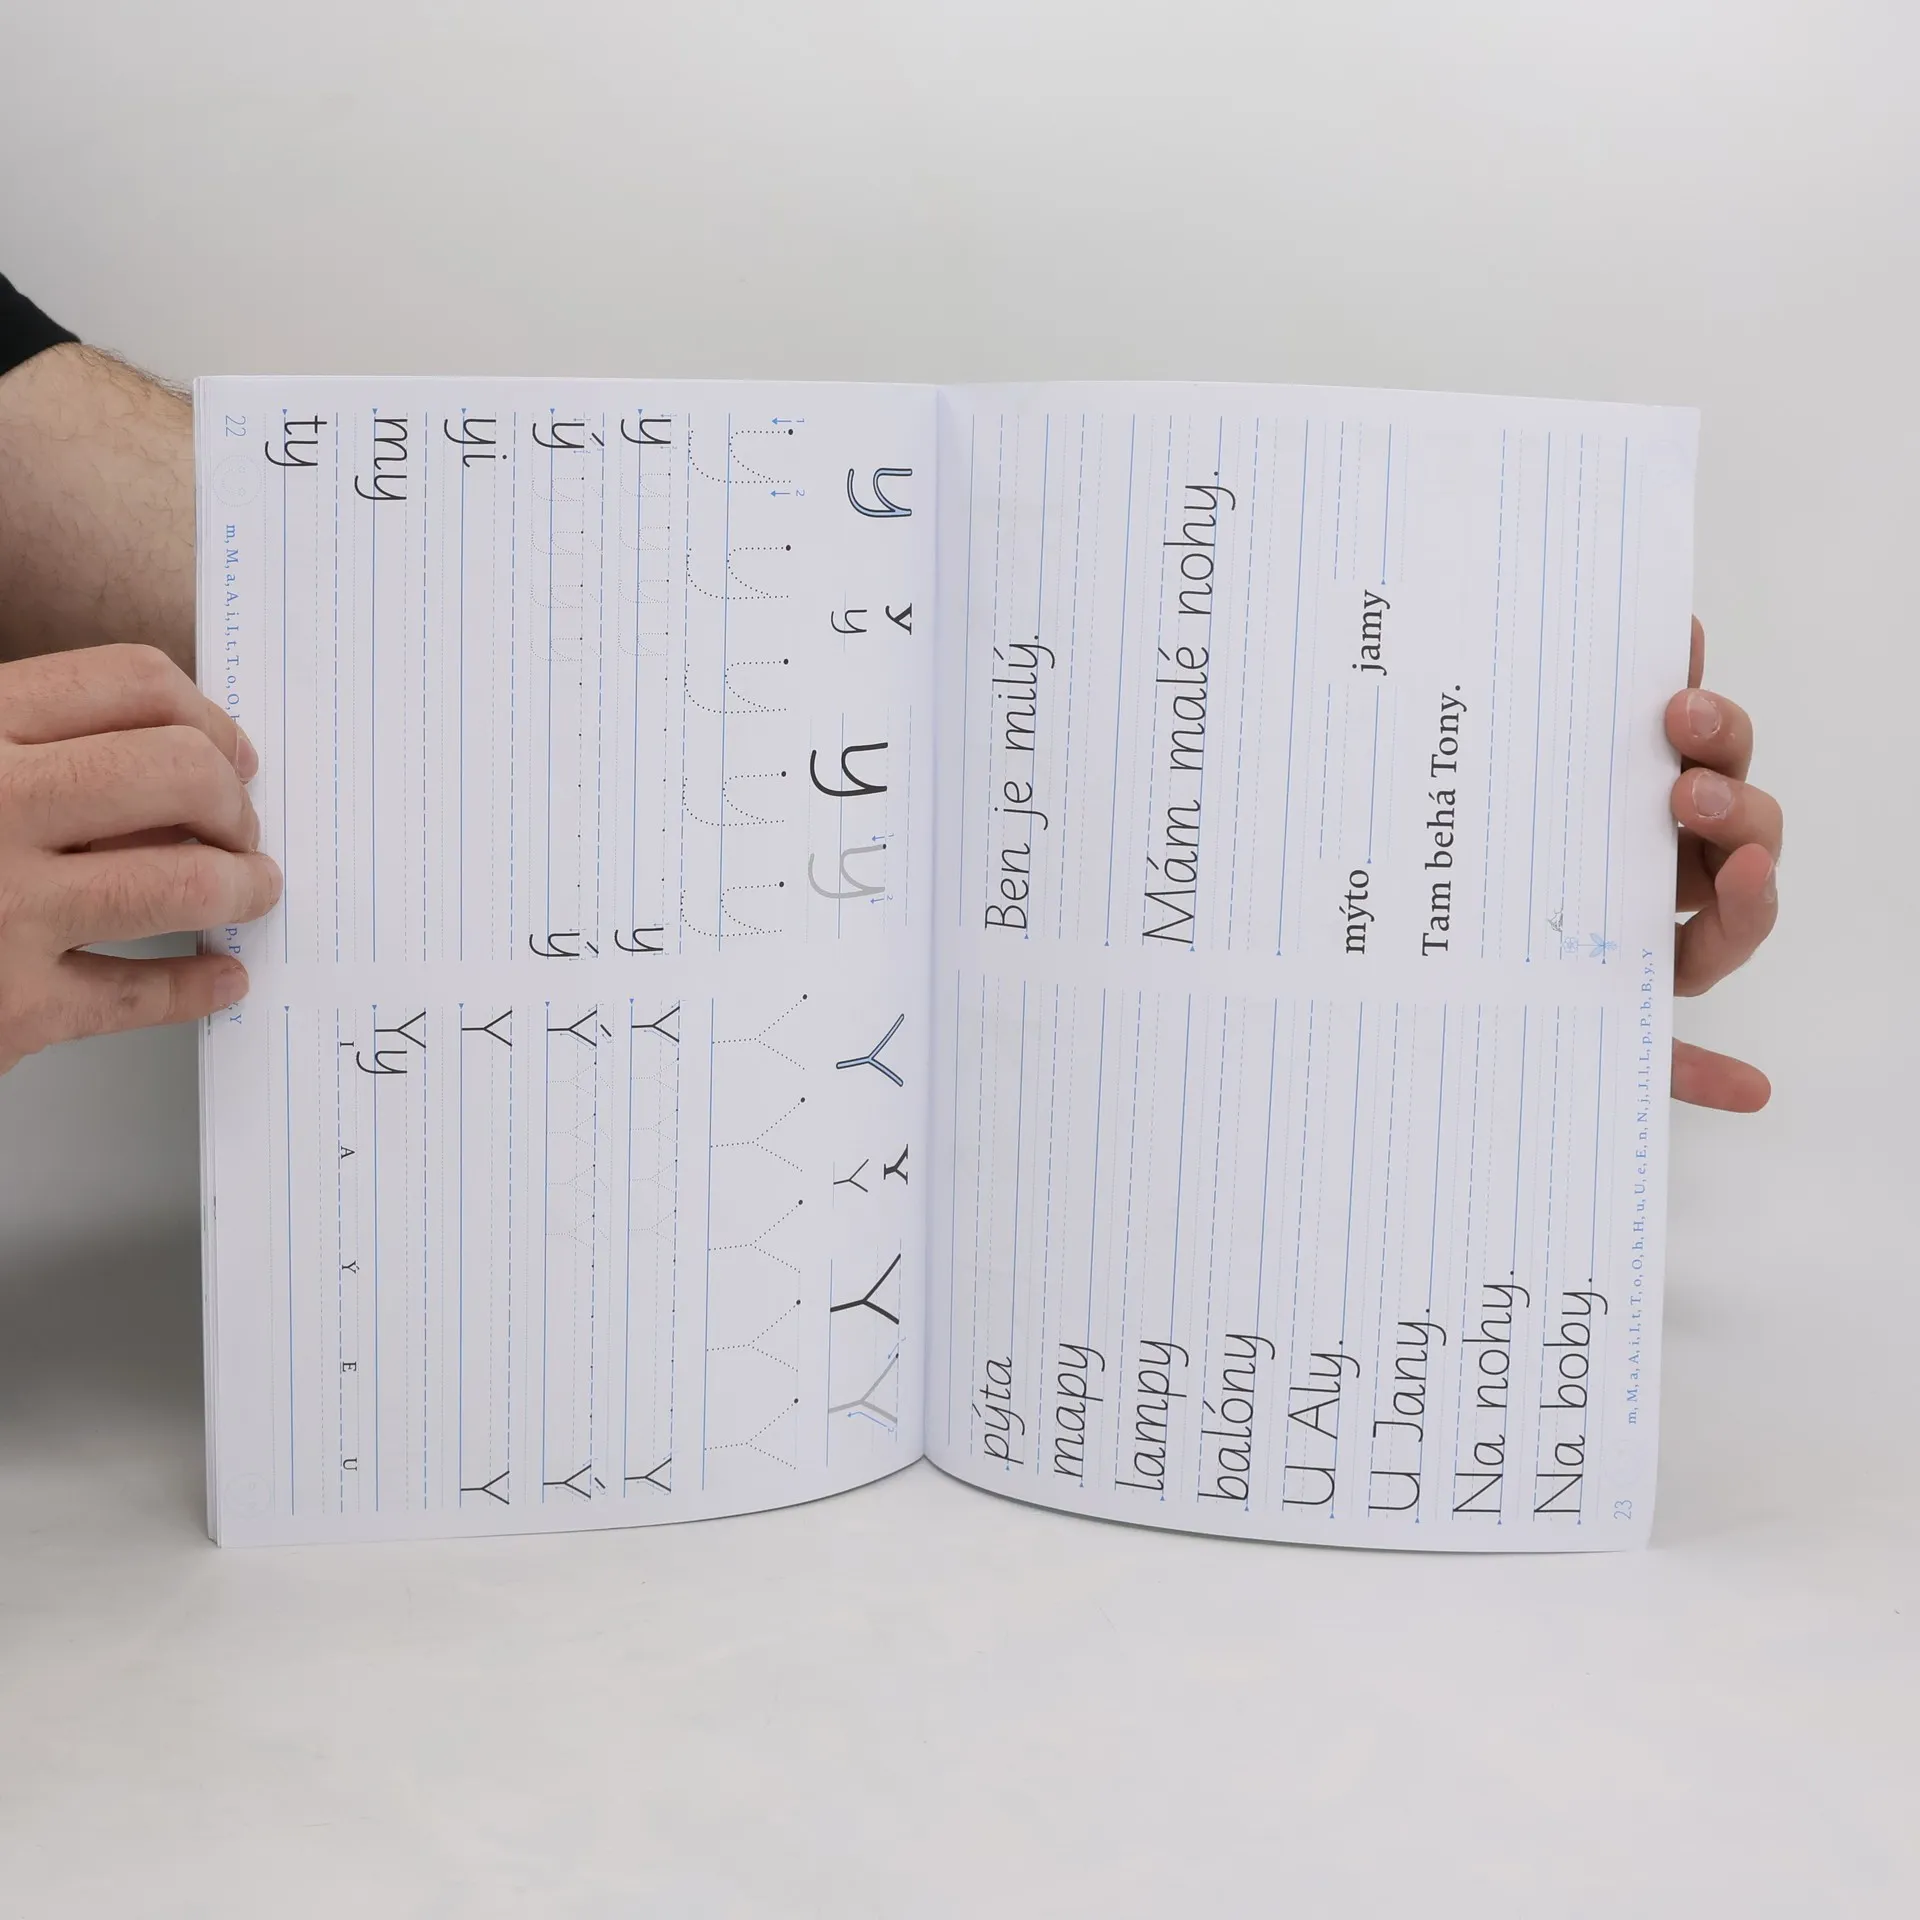 y y y y y
y y
ý ý
yi
my
ty
Y Y Y Y Y
Y Y
Ý Ý
Y Y
Yy
I A Ý E U
22 m, M, a, A, i, I, t, T, o, O, p, P Y
pýta
mapy
lampy
balóny
U Aly.
U Jany.
Na nohy.
Na boby.
Ben je milý.
Mám malé nohy.
mýto jamy
Tam behá Tony.
23 m, M, a, A, i, I, t, T, o, O, h, H, u, U, e, E, n, N, j, J, l, L, p, P, b, B, y, Y